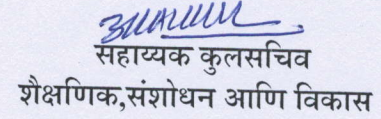 सहाय्यक कुलसचिव
शैक्षणिक,संशोधन आणि विकास